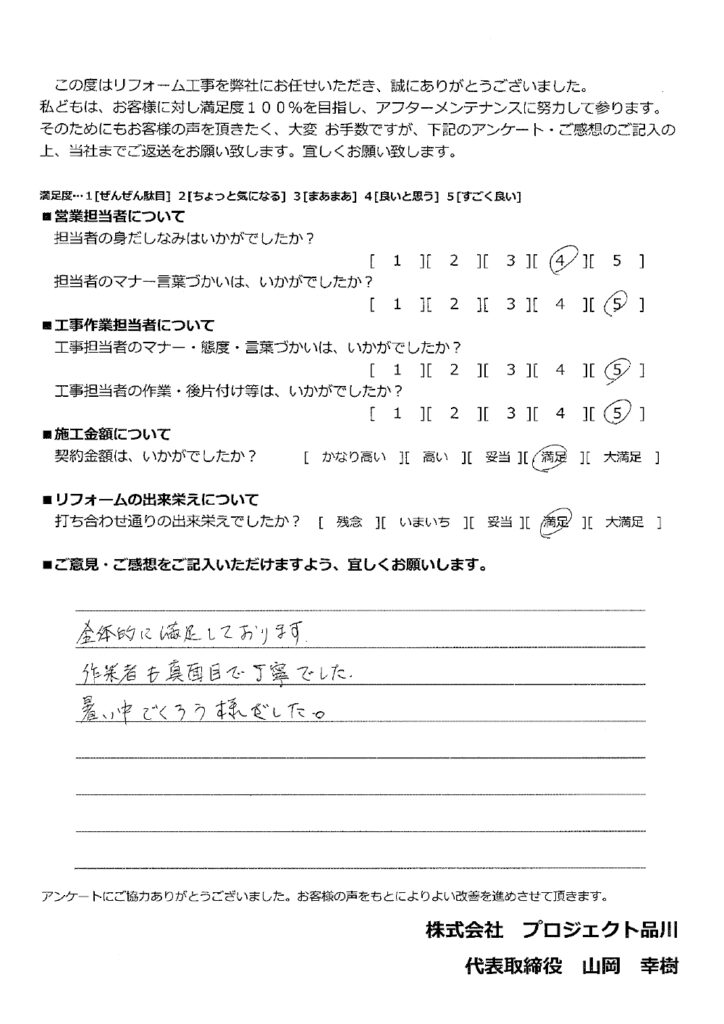 この度はリフォーム工事を弊社にお任せいただき、誠にありがとうございました。
私どもは、お客様に対し満足度１００％を目指し、アフターメンテナンスに努力して参ります。
そのためにもお客様の声を頂きたく、大変 お手数ですが、下記のアンケート・ご感想のご記入の
上、当社までご返送をお願い致します。宜しくお願い致します。
満足度…１[ぜんぜん駄目] ２[ちょっと気になる] ３[まあまあ] ４[良いと思う] ５[すごく良い]
■営業担当者について
担当者の身だしなみはいかがでしたか？
[ 1 ][ 2 ][ 3 ][ 4 ][ 5 ]
担当者のマナー言葉づかいは、いかがでしたか？
[ 1 ][ 2 ][ 3 ][ 4 ][ 5 ]
■工事作業担当者について
工事担当者のマナー・態度・言葉づかいは、いかがでしたか？
[ 1 ][ 2 ][ 3 ][ 4 ][ 5 ]
工事担当者の作業・後片付け等は、いかがでしたか？
[ 1 ][ 2 ][ 3 ][ 4 ][ 5 ]
■施工金額について
契約金額は、いかがでしたか？ [ かなり高い ][ 高い ][ 妥当 ][ 満足 ][ 大満足 ]
■リフォームの出来栄えについて
打ち合わせ通りの出来栄えでしたか？ [ 残念 ][ いまいち ][ 妥当 ][ 満足 ][ 大満足 ]
■ご意見・ご感想をご記入いただけますよう、宜しくお願いします。
全体的に満足しております.
作業者も真面目で丁寧でした.
暑い中ごくろう様でした。
アンケートにご協力ありがとうございました。お客様の声をもとによりよい改善を進めさせて頂きます。
株式会社 プロジェクト品川
代表取締役 山岡 幸樹